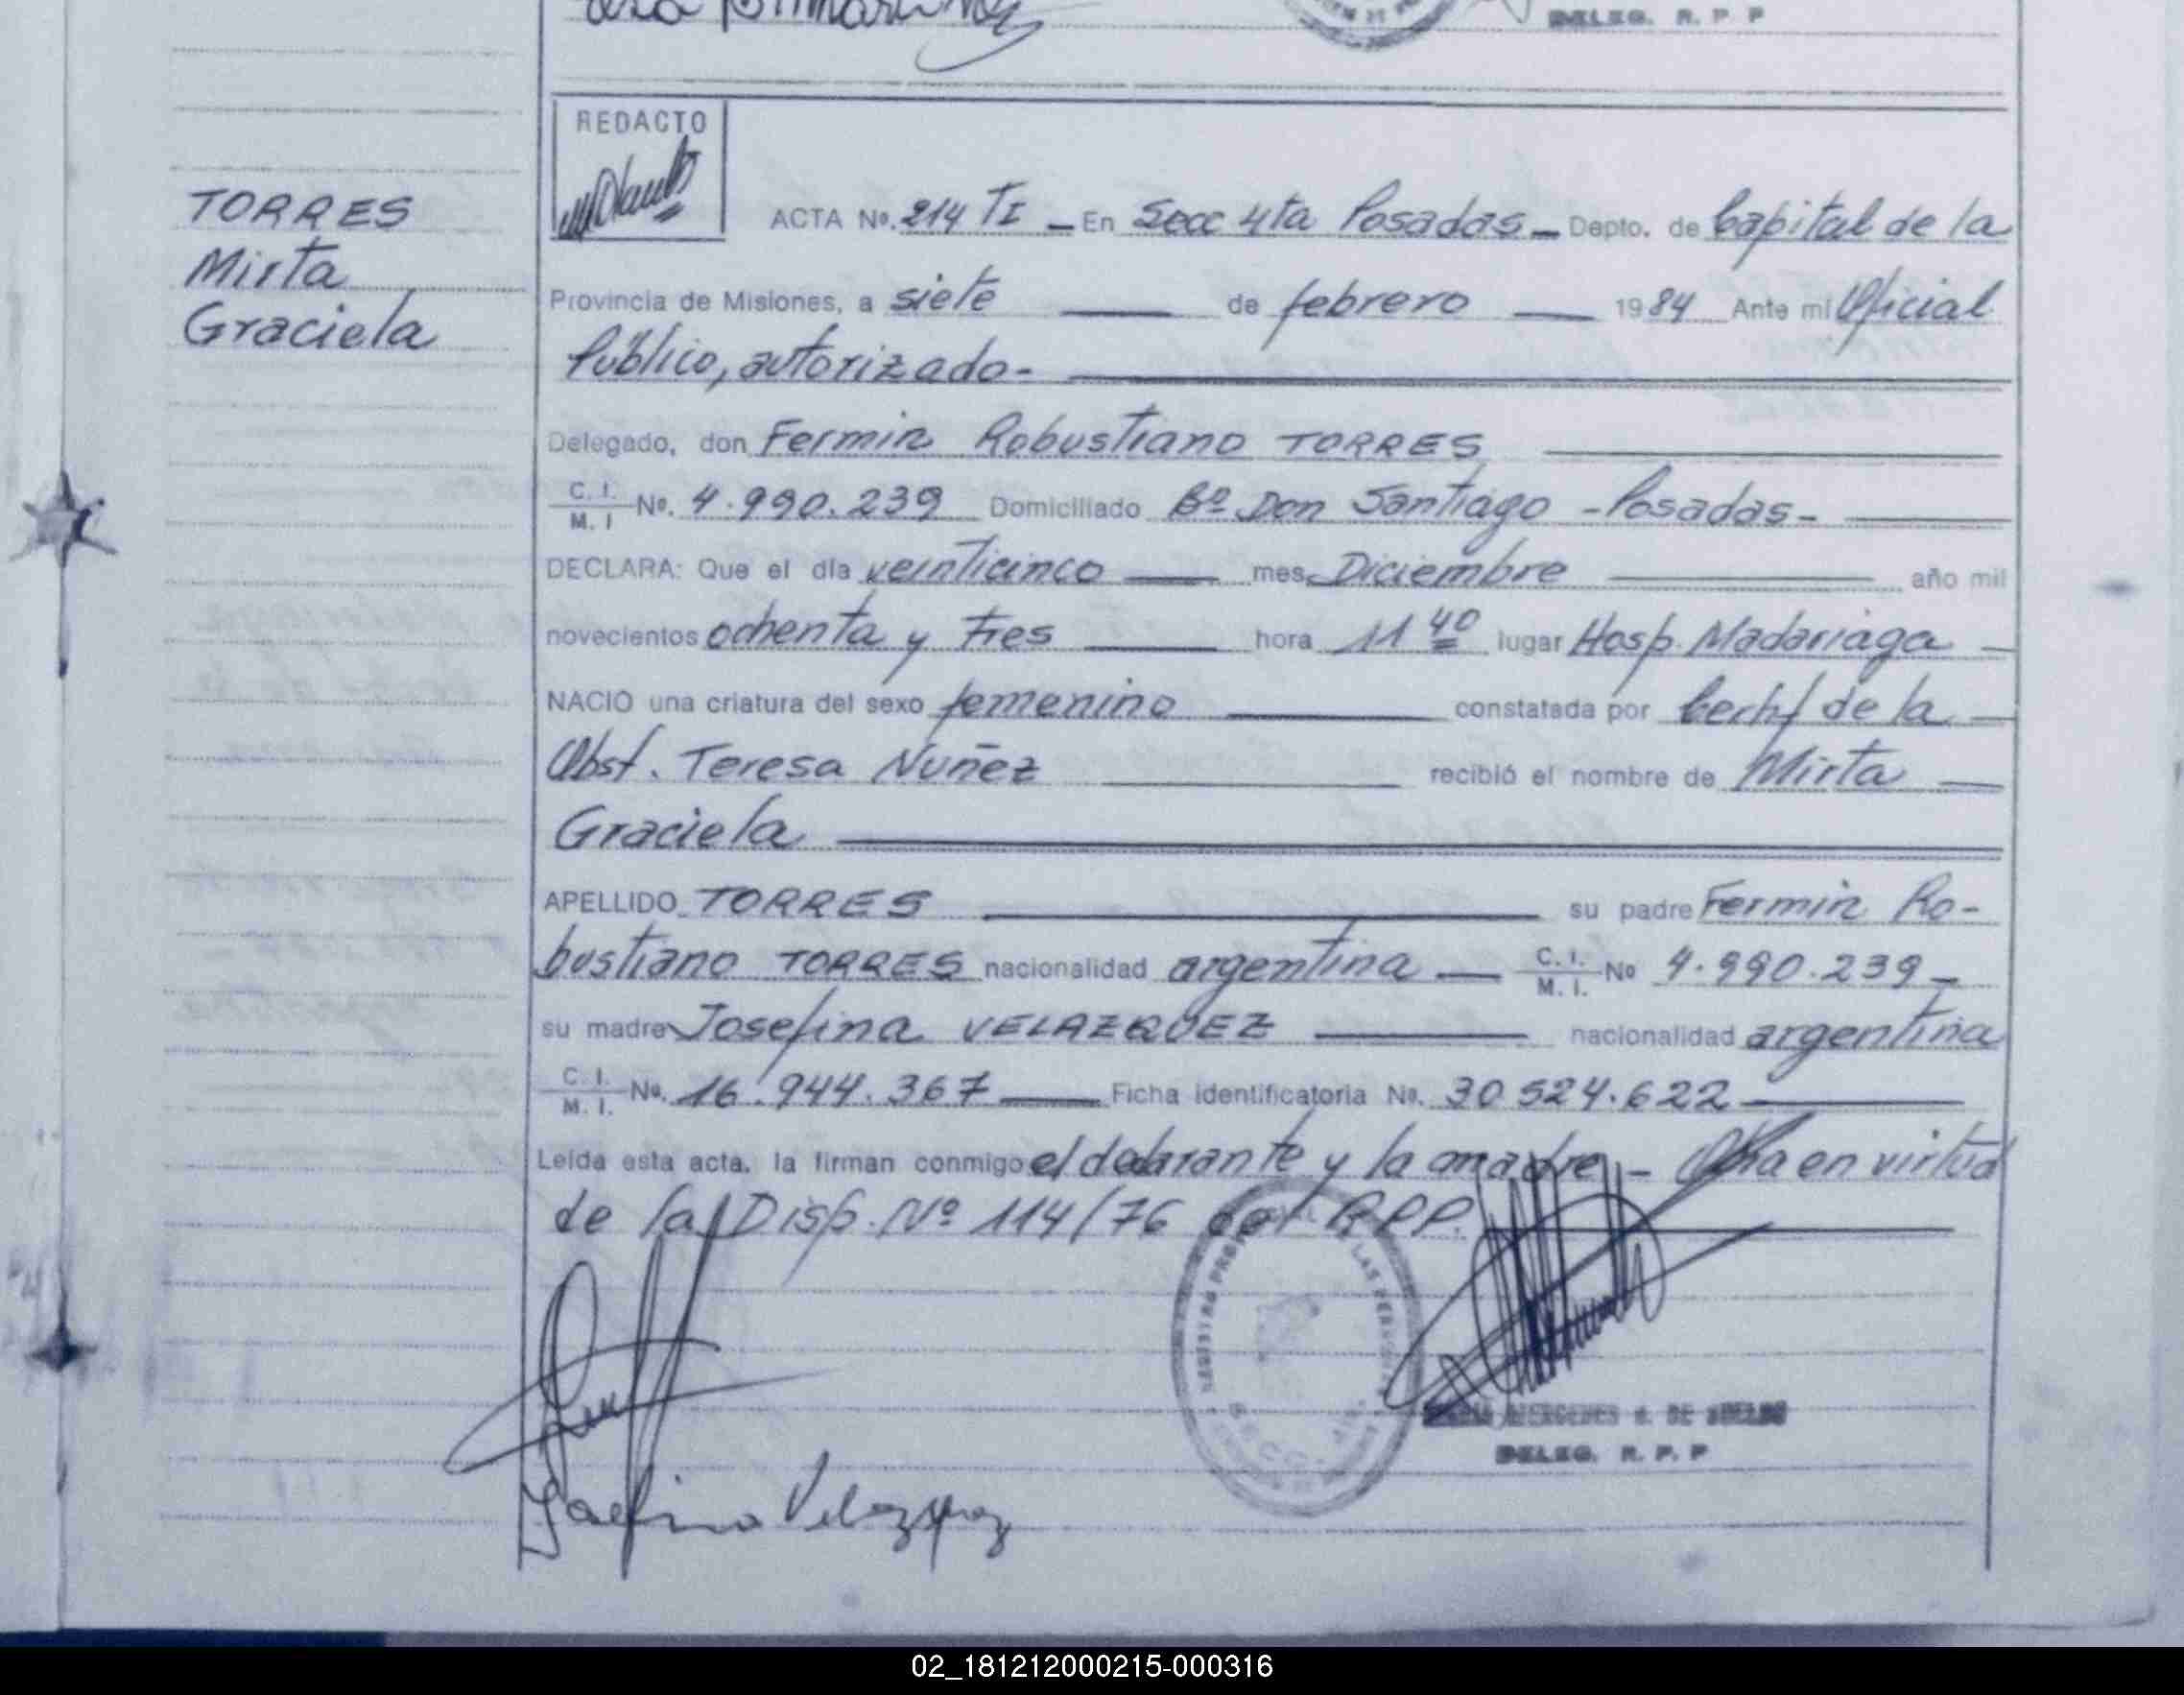 DELEG. R. P. P
REDACTO
TORRES
Mirta
Graciela
ACTA Nº. 214 TI - En Secc 4ta Posadas - Depto. de Capital de la
Provincia de Misiones, a siete de febrero 1984 Ante mi Oficial
Público, autorizado-
Delegado, don Fermin Robustiano TORRES
C. I. M. I Nº. 4.990.239 Domiciliado Bº Don Santiago - Posadas -
DECLARA: Que el día veinticinco mes Diciembre año mil
novecientos ochenta y tres hora 11 40 lugar Hosp. Madariaga
NACIO una criatura del sexo femenino constatada por Certif de la
Obst. Teresa Nuñez recibió el nombre de Mirta
Graciela
APELLIDO TORRES su padre Fermin Ro-
bustiano TORRES nacionalidad argentina C. I. M. I. Nº 4.990.239 -
su madre Josefina VELAZQUEZ nacionalidad argentina
C. I. M. I. Nº. 16.944.367 Ficha identificatoria Nº. 30 524.622
Leída esta acta, la firman conmigo el declarante y la madre - en virtud
de la Disp. Nº 114/76 del RPP.
DE
DELEG. R. P. P
Josefina Velazquez
02_181212000215-000316